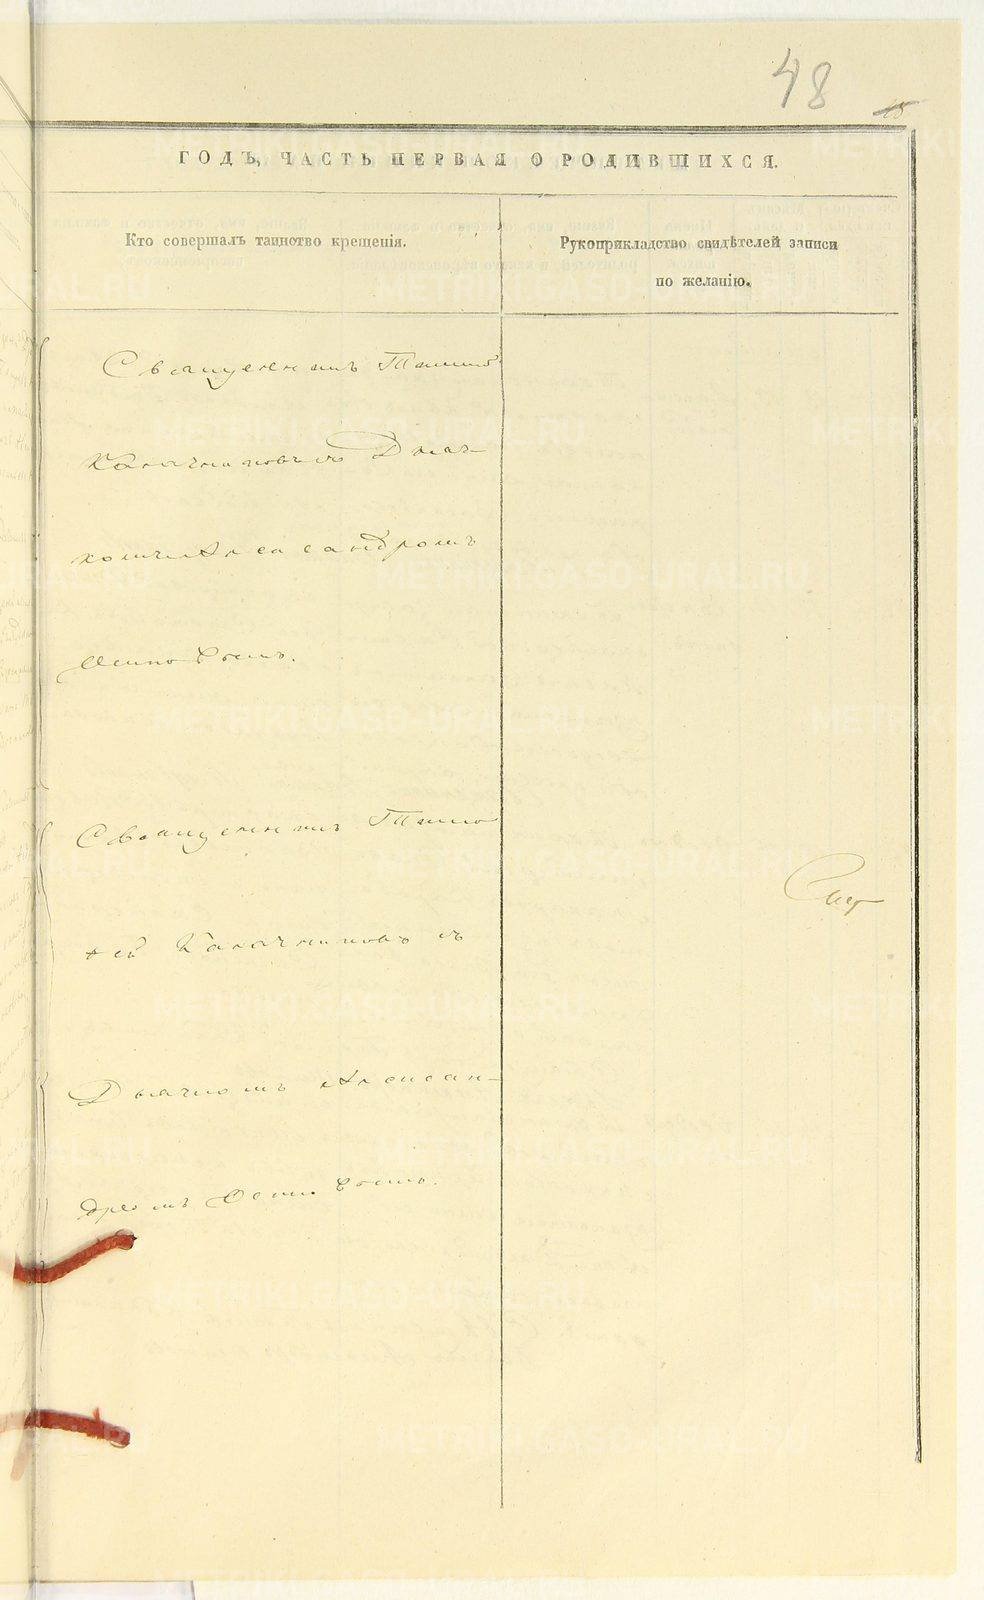 48
18
ГОДЪ, ЧАСТЬ ПЕРВАЯ О РОДИВШИХСЯ.
Кто совершалъ таинство крещенія.
Рукоприкладство свидѣтелей записи
по желанію.
Священникъ Тимоѳ
Калачниковъ съ Дьяч-
комъ Александромъ
Осиповымъ.
Священникъ Тимо
ѳей Калачниковъ съ
Дьячкомъ Алексан-
дромъ Осиповымъ.
METRIKI.GASO-URAL.RU